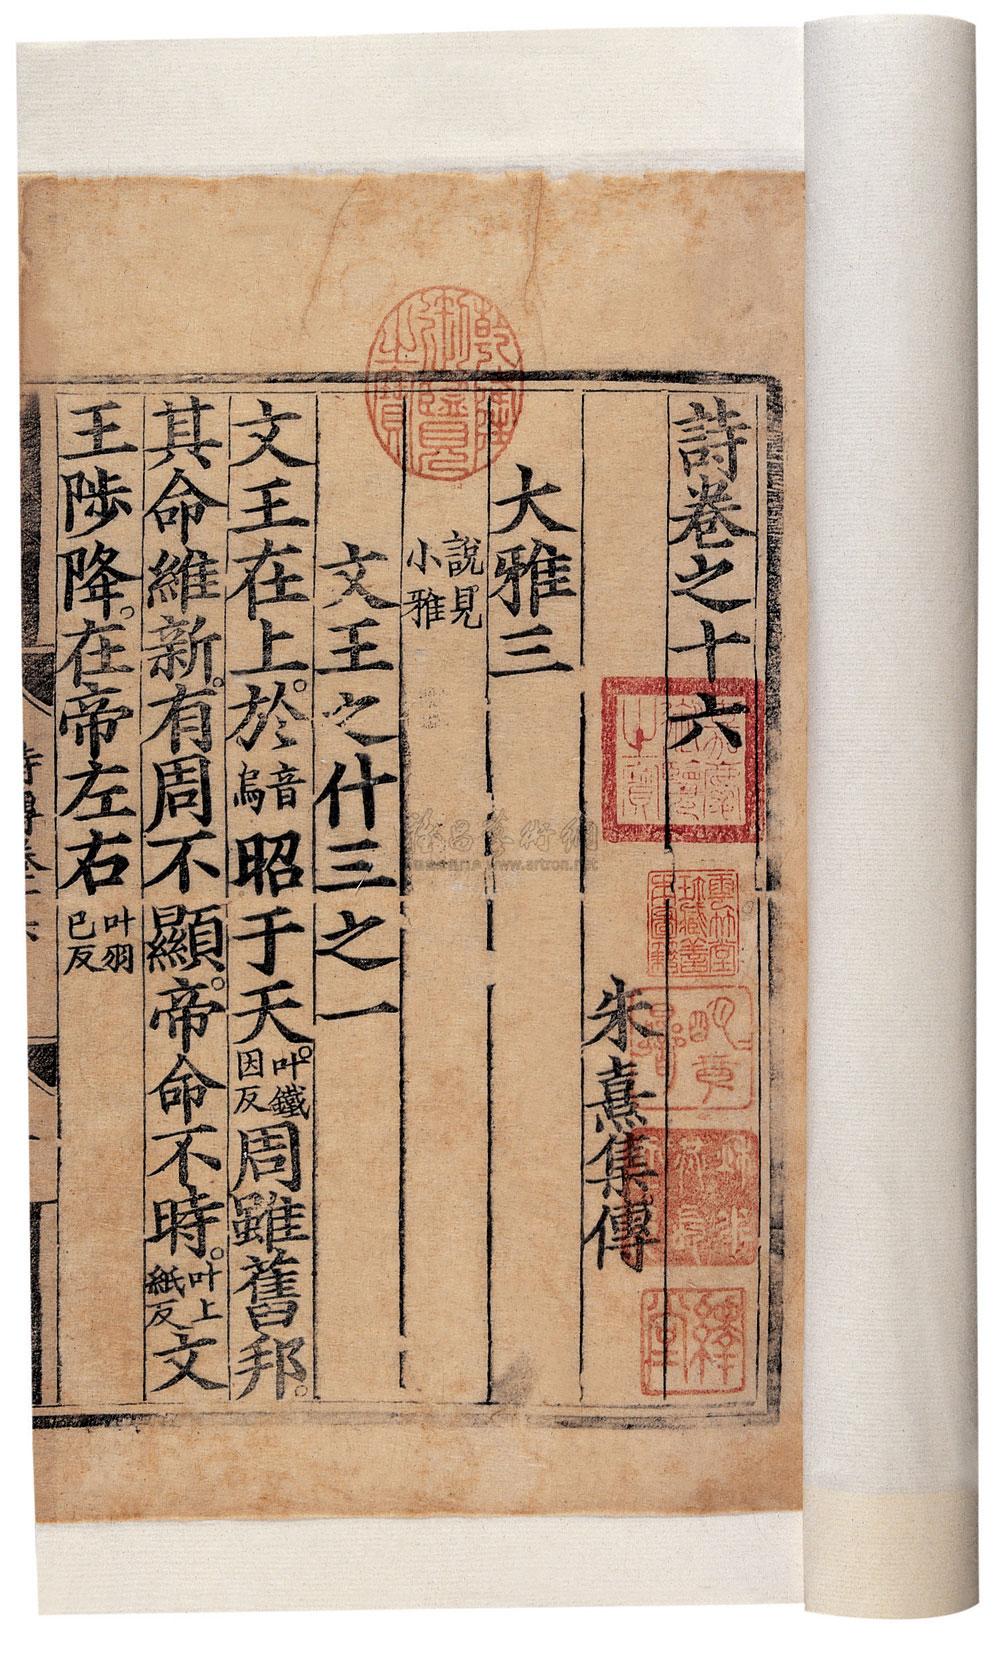 詩卷之十六
朱熹集傳
大雅三
說見
小雅
文王之什三之一
文王在上。於音
烏昭于天。叶鐵
因反周雖舊邦。
其命維新。有周不顯。帝命不時。叶上
紙反文
王陟降。在帝左右叶羽
已反
乾隆
御覽
之寶
雲林堂
珍藏善
本書籍
www.artron.net